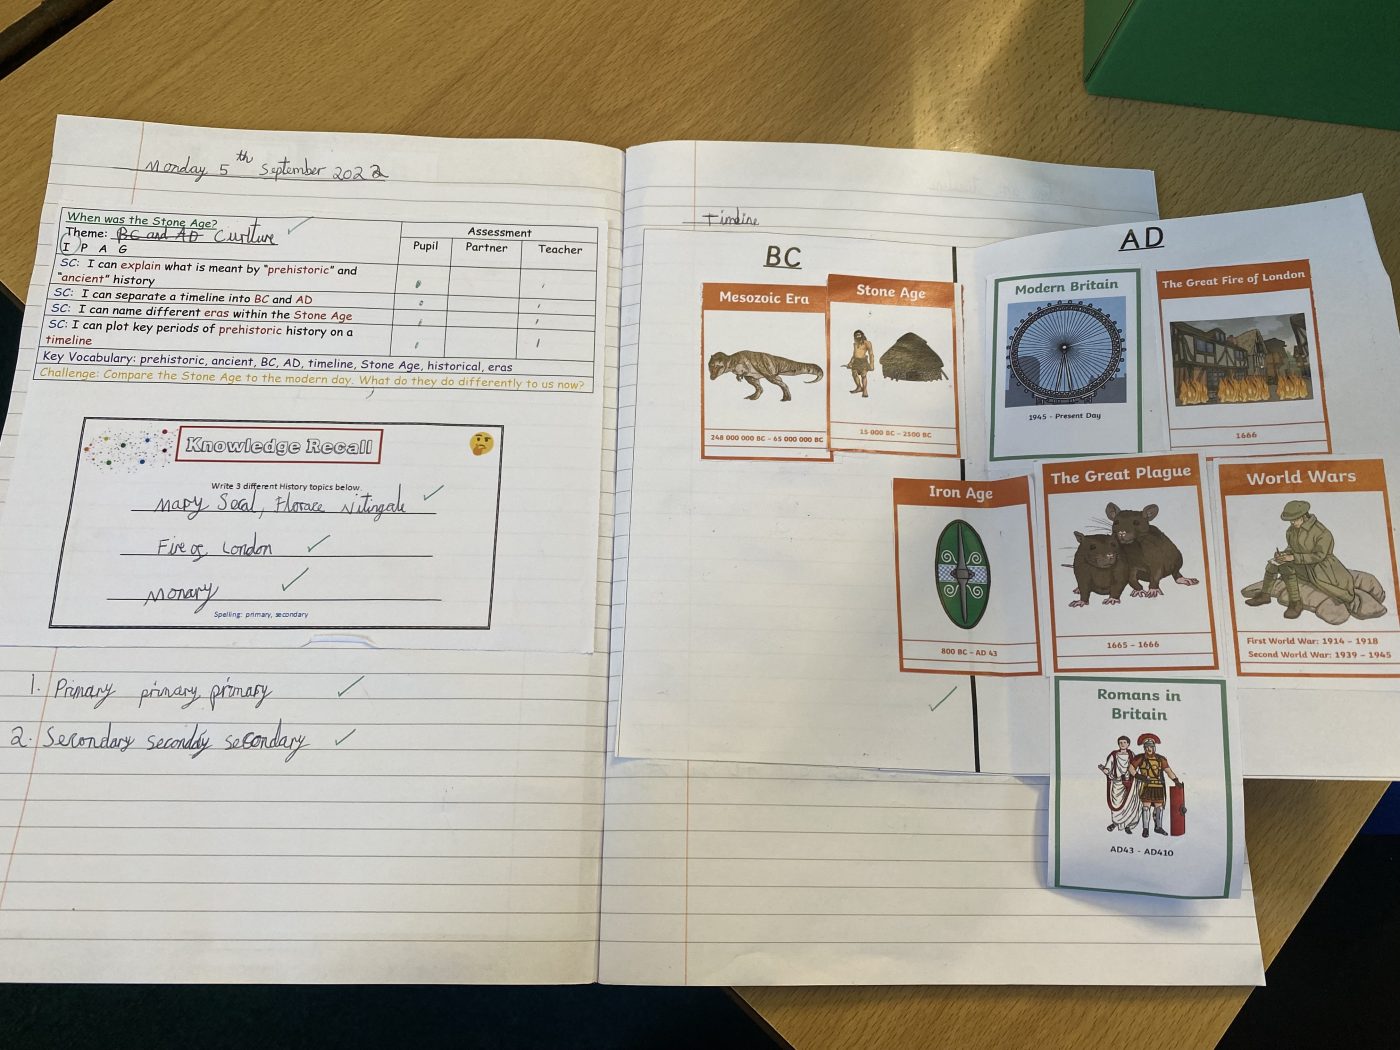 Monday 5th September 2022
When was the Stone Age?
Theme: BC and AD Curlture
I P A G
Assessment
Pupil Partner Teacher
SC: I can explain what is meant by "prehistoric" and
"ancient" history
SC: I can separate a timeline into BC and AD
SC: I can name different eras within the Stone Age
SC: I can plot key periods of prehistoric history on a
timeline
Key Vocabulary: prehistoric, ancient, BC, AD, timeline, Stone Age, historical, eras
Challenge: Compare the Stone Age to the modern day. What do they do differently to us now?
Knowledge Recall
Write 3 different History topics below.
Mary Secal, Florace Nitingale
Fire of London
Monary
Spelling: primary, secondary
1. Primary primary, primary
2. Secondary secondary secondary
Timeline
BC
AD
Mesozoic Era
248 000 000 BC - 65 000 000 BC
Stone Age
15 000 BC - 2500 BC
Modern Britain
1945 - Present Day
The Great Fire of London
1666
Iron Age
800 BC - AD 43
The Great Plague
1665 - 1666
World Wars
First World War: 1914 - 1918
Second World War: 1939 - 1945
Romans in
Britain
AD43 - AD410